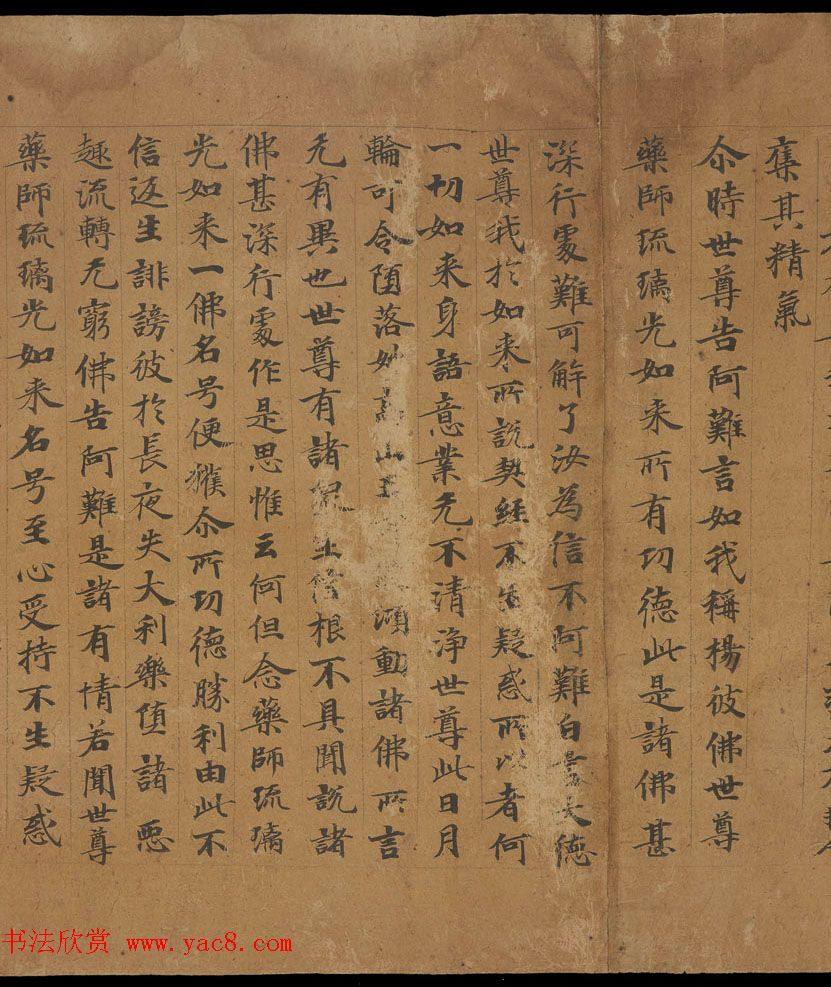 奪其精氣
尒時世尊告阿難言如我稱楊彼佛世尊
藥師琉璃光如来所有功德此是諸佛甚
深行處難可解了汝為信不阿難白言大德
世尊我於如来所說契経不生疑惑所以者何
一切如来身語意業无不清淨世尊此日月
輪可令堕落妙高山王傾動諸佛所言
无有異也世尊有諸衆生信根不具聞說諸
佛甚深行處作是思惟云何但念藥師琉璃
光如来一佛名号便獲尒所功德勝利由此不
信返生誹謗彼於長夜失大利樂堕諸悪
趣流轉无窮佛告阿難是諸有情若聞世尊
藥師琉璃光如来名号至心受持不生疑惑
书法欣赏 www.yac8.com